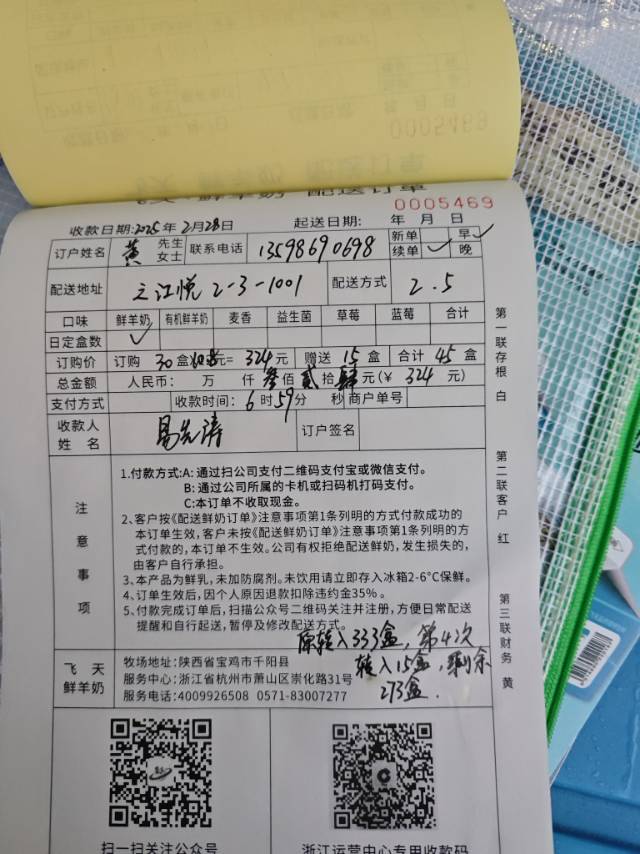 0005469
飞天·鲜羊奶 配送订单
0005469
收款日期:2025年2月28日 起送日期: 年 月 日
订户姓名 黄 先生 女士 联系电话 13598690698 新单 早✓
续单 ✓ 晚
配送地址 之江悦 2-3-1001 配送方式 2.5
口味 鲜羊奶 有机鲜羊奶 麦香 益生菌 草莓 蓝莓 合计
日定盒数 ✓
订购价 订购 30 盒 元= 324 元 赠送 15 盒 合计 45 盒
总金额 人民币: 万 仟 叁佰 贰拾 肆元(¥ 324 元)
支付方式 收款时间: 6时59分 秒 商户单号
收款人姓名 易先涛 订户签名
注意事项
1.付款方式:A: 通过扫公司支付二维码支付宝或微信支付。
B: 通过公司所属的卡机或扫码机打码支付。
C:本订单不收取现金。
2、客户按《配送鲜奶订单》注意事项第1条列明的方式付款成功的
本订单生效，客户未按《配送鲜奶订单》注意事项第1条列明的方
式付款的，本订单不生效。公司有权拒绝配送鲜奶，发生损失的，
由客户自行承担。
3、本产品为鲜乳，未加防腐剂。未饮用请立即存入冰箱2-6℃保鲜。
4、订单生效后，因个人原因退款扣除违约金35%。
5、付款完成订单后，扫描公众号二维码关注并注册，方便日常配送
提醒和自行起送，暂停及修改配送方式。
原转入333盒，第4次
转入15盒，剩余
273盒.
飞天
鲜羊奶
牧场地址:陕西省宝鸡市千阳县
服务中心:浙江省杭州市萧山区崇化路31号
服务电话:4009926508 0571-83007277
扫一扫关注公众号
浙江运营中心专用收款码
第一联存根 白
第二联客户 红
第三联财务 黄